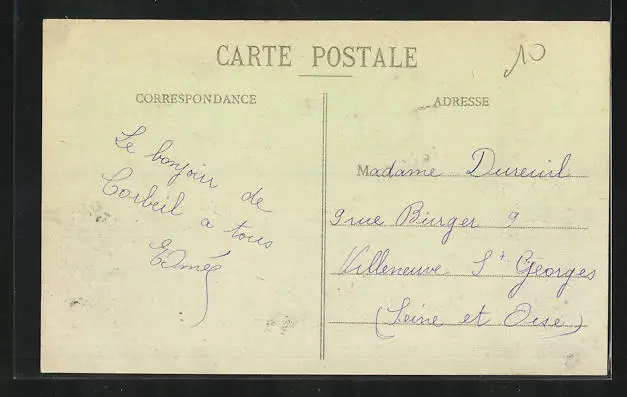 CARTE POSTALE
10
CORRESPONDANCE
Le bonjour de
Corbeil a tous
Edmée
ADRESSE
Madame Dureuil
9 rue Burger 9
Villeneuve St Georges
(Seine et Oise)